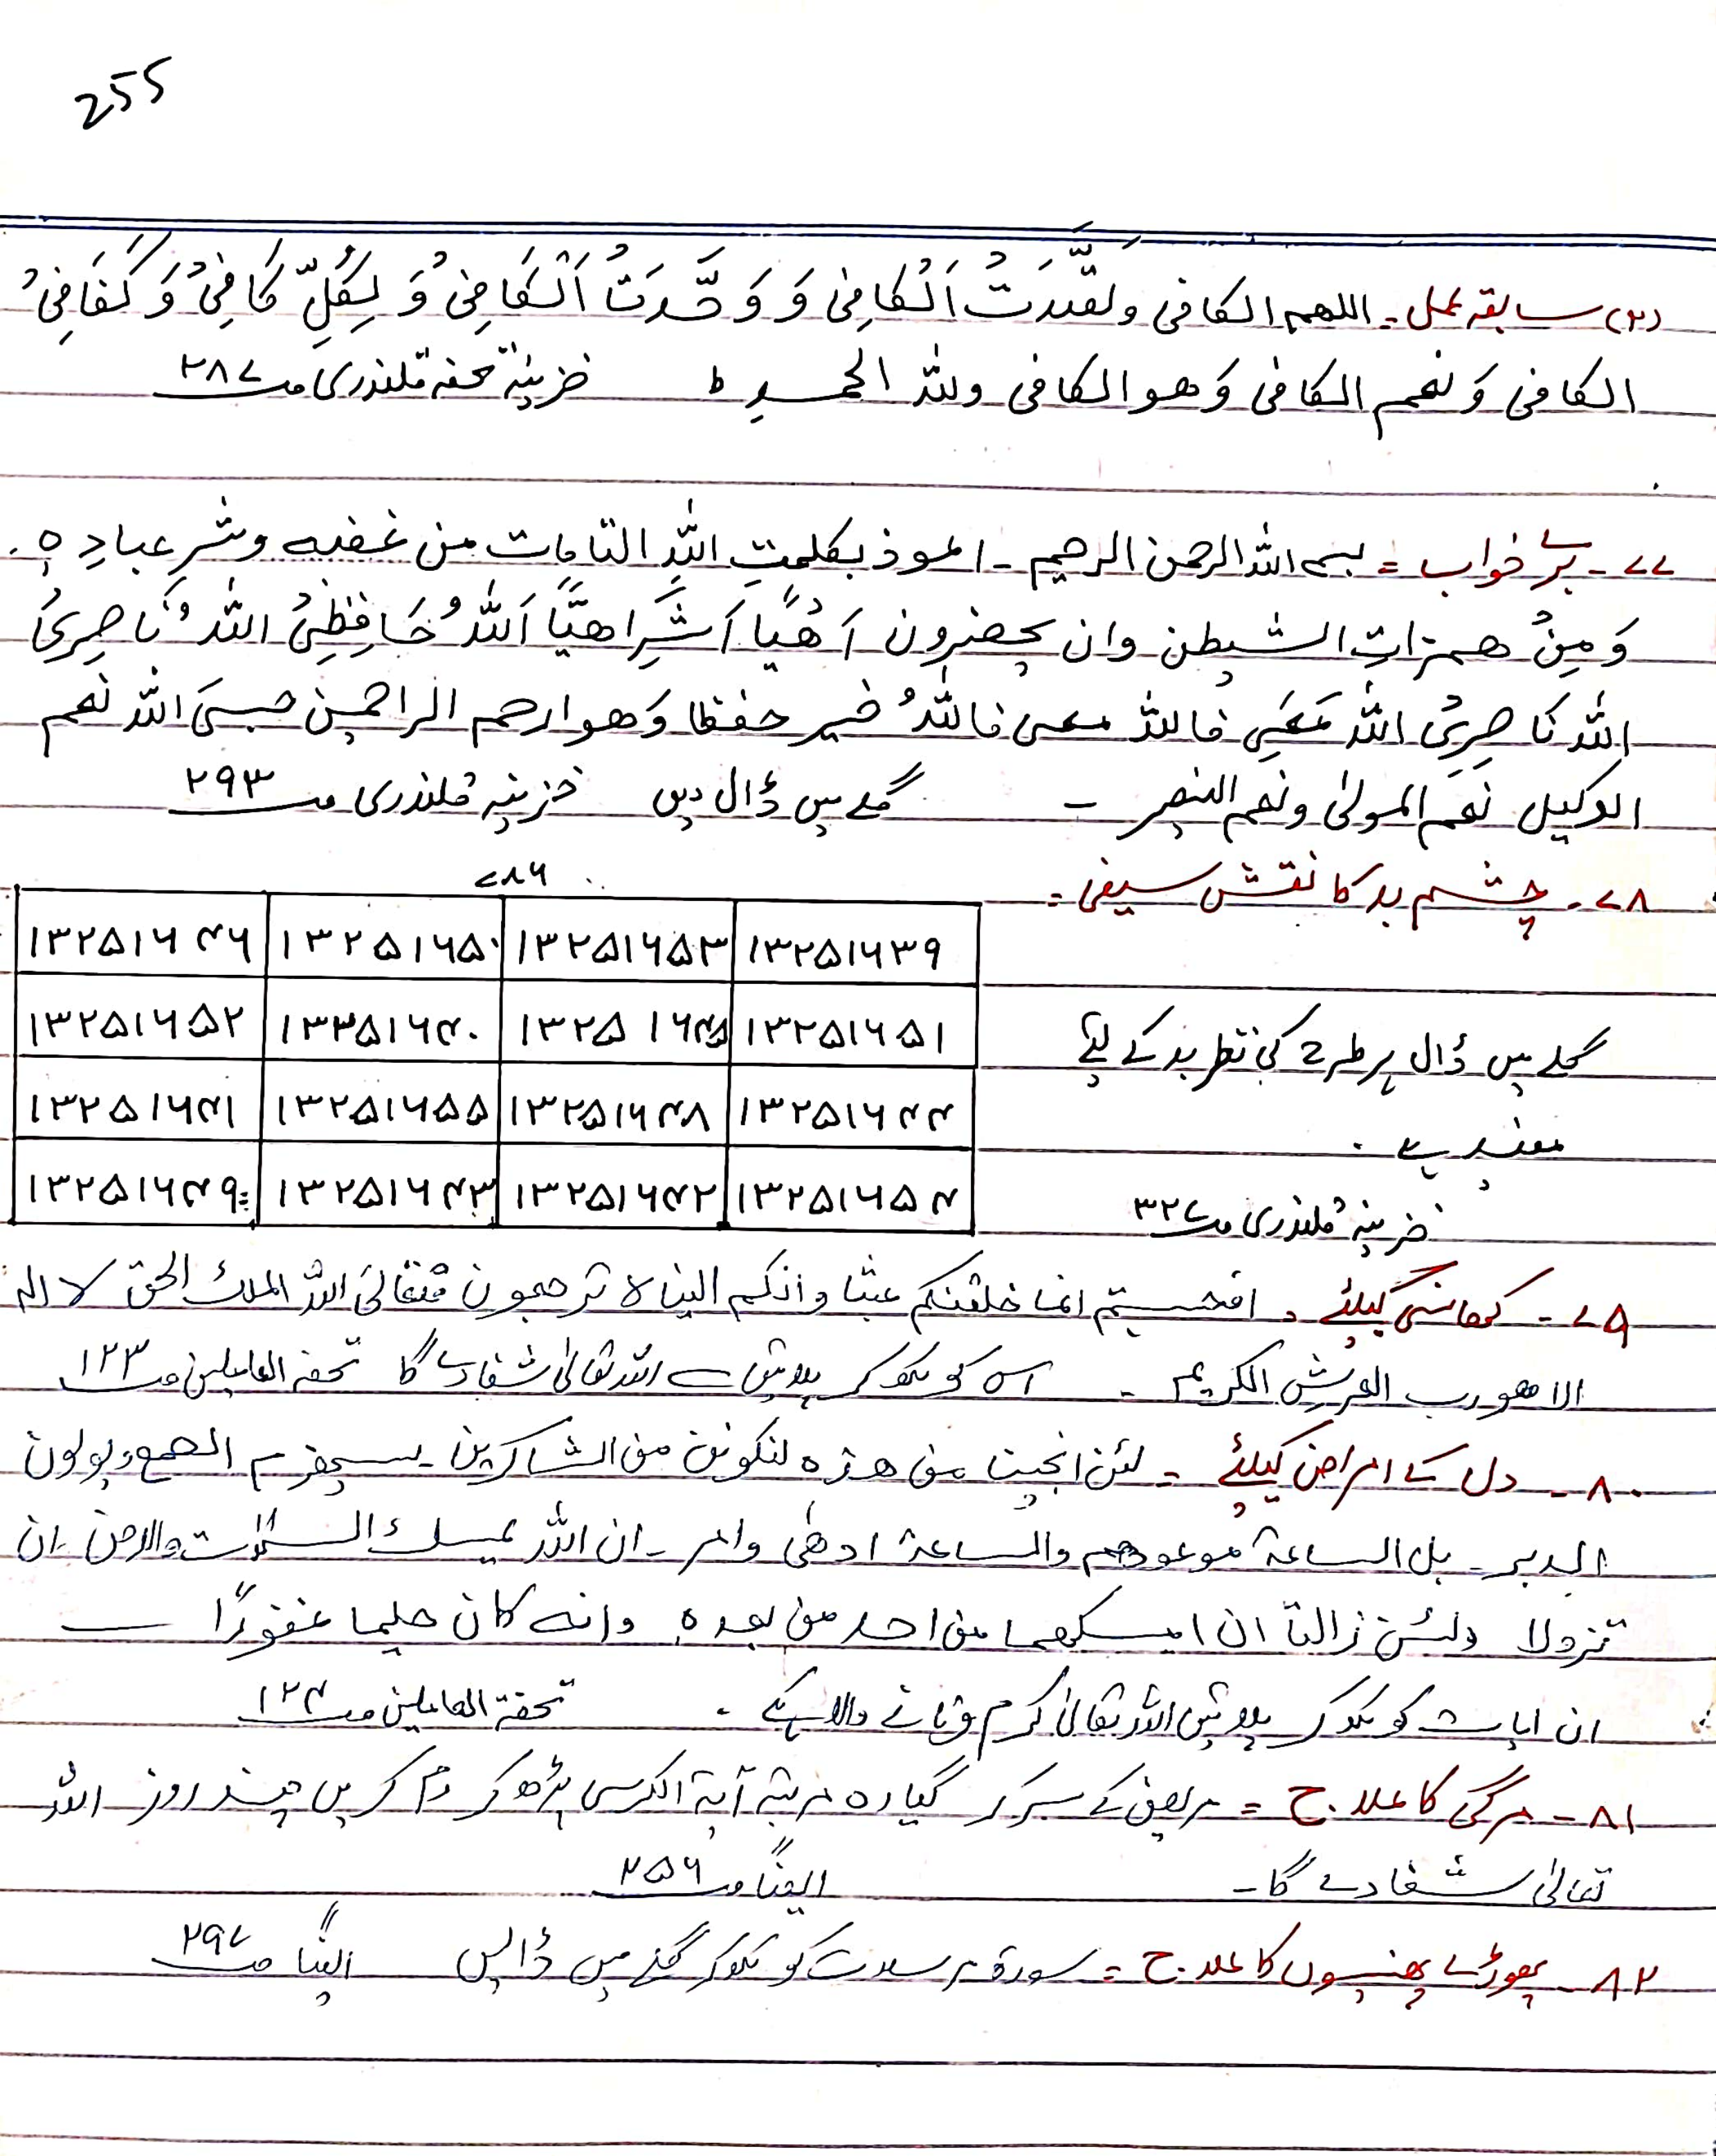 255
(۲) سابقہ عمل ۔ اللھم الکافی ولقَّیَدَتُ اَلْکَافِی وَ وَحَّدَتُ اَلْکَافِیُ وَ لِکُلِّ کَافِیُ وَ کَفَافِیُ
الکافی وَ نعم الکافی وَ ھو الکافی وللہ الحمد ط خزینۂ تحفہ قلندری صـ ۲۸۷
۷۷ ۔ برے خواب = بسم اللہ الرحمن الرحیم ۔ اعوذ بکلمتِ اللہِ التامات من غضبه وشرِ عبادِہٖ
وَ مِنُ ھمزاتِ الشیطن وان یحضرون اَھُیًا اَشَرِاھیًّا اَللہُ حَافِظِیُ اللہُ نَاصِرِیُ
اللہُ نَاصِرِیُ اللہُ مَعَیِ فاللہ معی فاللہُ خیر حفظا وَھو ارحم الراحمین حسبیَ اللہ نعم
الوکیل نعم المولیٰ ونعم النصیر ۔ گلے میں ڈال دیں خزینہ قلندری صـ ۲۹۳
۷۸ ۔ چشم بد کا نقش سیفی =
۷۸۶
۱۳۲۵۱۶۳۹ ۱۳۲۵۱۶۵۳ ۱۳۲۵۱۶۵۰ ۱۳۲۵۱۶۴۶
۱۳۲۵۱۶۵۱ ۱۳۲۵۱۶۴۵ ۱۳۳۵۱۶۴۰ ۱۳۲۵۱۶۵۲
گلے میں ڈال ہر طرح کی نظر بد کے لیئے
۱۳۲۵۱۶۴۴ ۱۳۲۵۱۶۴۸ ۱۳۲۵۱۶۵۵ ۱۳۲۵۱۶۴۱
مفید ہے ۔
۱۳۲۵۱۶۵۴ ۱۳۲۵۱۶۴۲ ۱۳۲۵۱۶۴۳ ۱۳۲۵۱۶۴۹
خزینہ قلندری صـ ۳۲۷
۷۹ ۔ کھانسی کیلئے ۔ افحسبتم انما خلقنکم عبثا وانکم الینا لا ترجعون فتعالیٰ اللہ الملک الحق لا الہ
الا ھو رب العرش الکریم ۔ اس کو لکھ کر پلائیں اللہ تعالیٰ شفا دے گا تحفہ العاملین صـ ۱۲۳
۸۰ ۔ دل کے امراض کیلئے = لئن انجیت من ھذہ لنکونن من الشاکرین ۔ سیھزم الجمع ویولون
الدبر ۔ بل الساعة موعودھم والساعة ادھٰی وامر ۔ ان اللہ یمسک السمٰوٰت والارض ان
تزولا ولئن زالتا ان امسکھما من احد من بعدہ وانه کان حلیما غفورًا
ان ایات کو لکھ کر پلائیں اللہ تعالیٰ کرم فرمانے والا ہے ۔ تحفة العاملین صـ ۱۲۴
۸۱ ۔ مرگی کا علاج = مریض کے سر پر گیارہ مرتبہ آیۃ الکرسی پڑھ کر دم کریں چند روز اللہ
تعالیٰ شفا دے گا ۔ ایضًا صـ ۲۵۶
۸۲ ۔ پھوڑے پھنسیوں کا علاج = سورۃ مرسلات کو لکھ کر گلے میں ڈالیں ایضًا صـ ۲۹۷